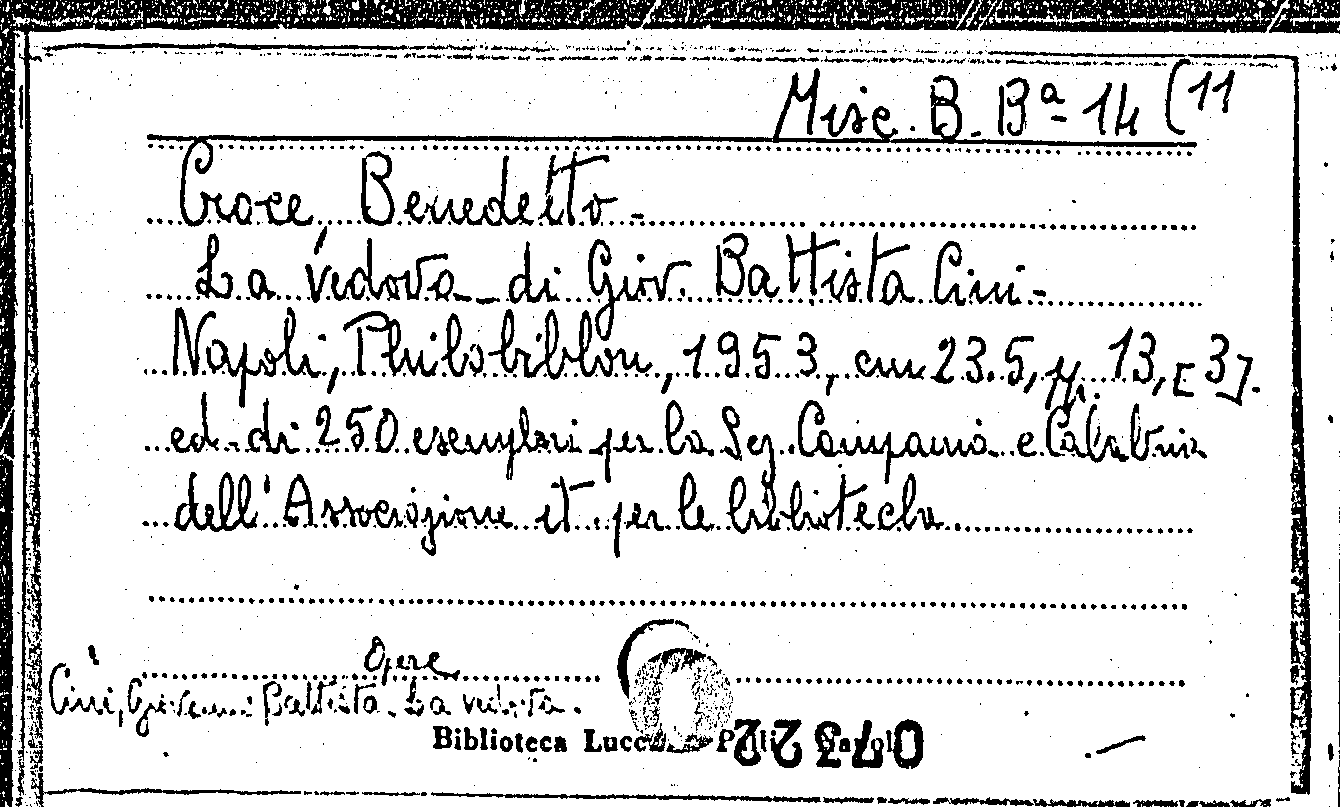 Misc. B. Bª 14 (11
Croce, Benedetto -
La vedova di Giov. Battista Cini -
Napoli, Philobiblon, 1953, cm 23.5, pp. 13, [3].
ed. di 250 esemplari per la Sez. Campania e Calabria
dell'Associazione it. per le biblioteche.
Opere
Cini, Giovanni Battista. La vedova.
Biblioteca